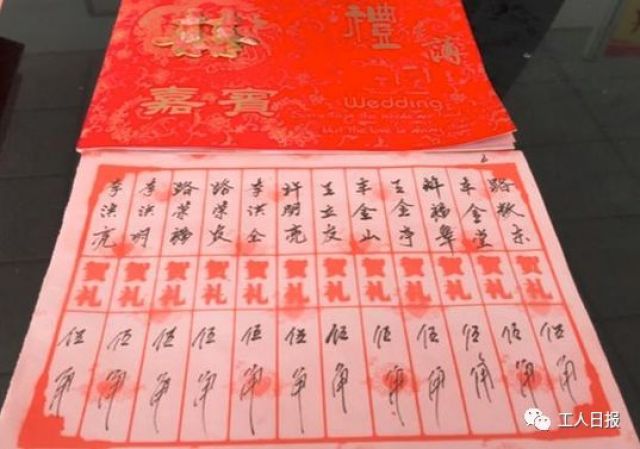 禮簿
嘉賓
Wedding
路振东 贺礼 伍角
金堂 贺礼 伍角
许福阜 贺礼 伍角
王金亭 贺礼 伍角
金山 贺礼 伍角
王立文 贺礼 伍角
许明亮 贺礼 伍角
李洪全 贺礼 伍角
路荣发 贺礼 伍角
路荣 贺礼 伍角
李洪明 贺礼 伍角
李洪亮 贺礼 伍角
工人日报